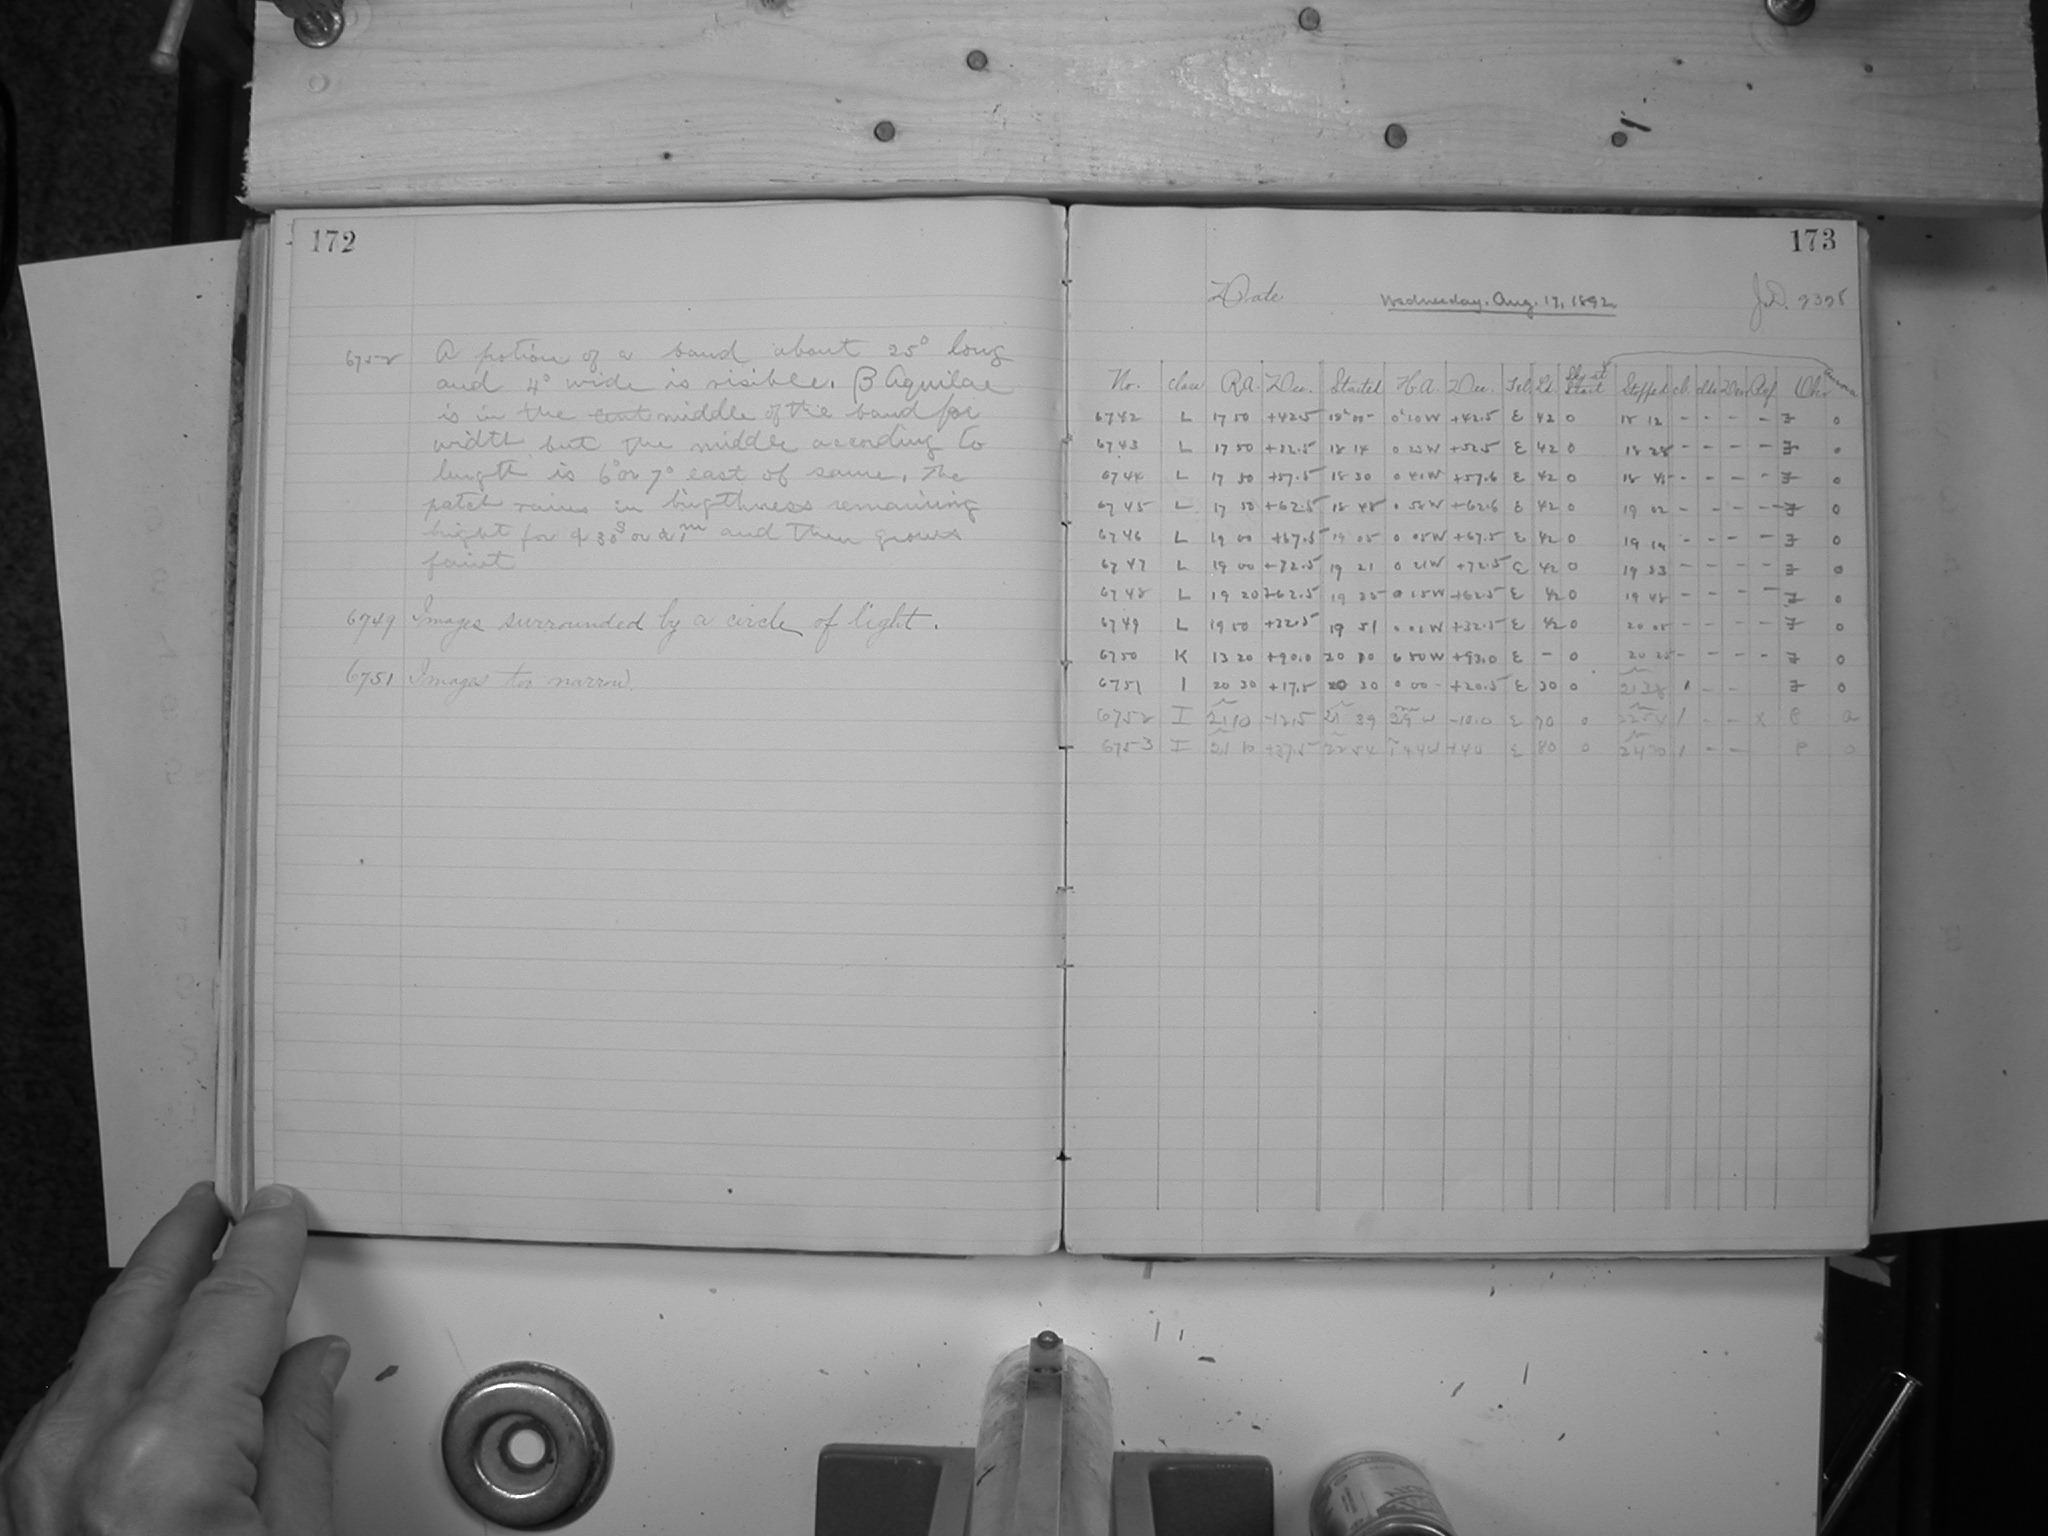 172
6752 A potion of a band about 25° long
and 4° wide is visible. β Aquilae
is in the cent middle of the band for
width but the middle according to
length is 6° or 7° east of same. The
patch varies in brigthness remaining
bright for 30s or 1m and then grows
faint
6749 Images surrounded by a circle of light.
6751 Images too narrow.
173
Date Wednesday, Aug. 17, 1892. J.D. 2328
No. Class R.A. Dec. Started H.A. Dec. Tel. Ld. Sky at Start Stopped cl. clds Dew Obs Aurora
6742 L 17 50 +42.5 18 00 0 10W +42.5 E 42 0 18 12 - - - - F 0
6743 L 17 50 +52.5 18 14 0 25W +52.5 E 42 0 18 28 - - - - F 0
6744 L 17 50 +57.5 18 30 0 41W +57.6 E 42 0 18 45 - - - - F 0
6745 L 17 50 +62.5 18 48 0 58W +62.6 E 42 0 19 02 - - - - F 0
6746 L 19 00 +67.5 19 05 0 05W +67.5 E 42 0 19 19 - - - - F 0
6747 L 19 00 +72.5 19 21 0 21W +72.5 E 42 0 19 33 - - - - F 0
6748 L 19 20 +62.5 19 35 0 15W +62.5 E 42 0 19 48 - - - - F 0
6749 L 19 50 +32.5 19 51 0 01W +32.5 E 42 0 20 05 - - - - F 0
6750 K 13 20 +90.0 20 10 6 50W +93.0 E - 0 20 25 - - - - F 0
6751 I 20 30 +17.5 20 30 0 00 - +20.5 E 30 0 21 38 1 - - F 0
6752 I 21 10 -12.5 21 39 29 W -10.0 E 70 0 22 54 1 - - x 8 a
6753 I 21 10 +37.5 22 54 1 44W +40 E 80 0 24 30 1 - - 8 0